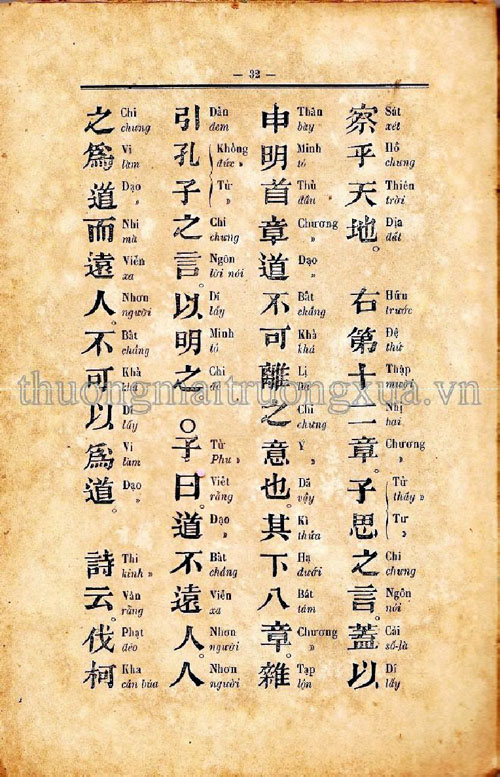 — 32 —
察乎天地。右第十二章。子思之言。蓋以
Sát xét Hồ chưng Thiên trời Địa đất Hữu trước Đệ thứ Thập mười Nhị hai Chương » Tử thầy » Tư » Chi chưng Ngôn nói Cái số-là Dĩ lấy
申明首章道不可離之意也。其下八章。雜
Thân bày Minh tỏ Thủ đầu Chương » Đạo » Bất chẳng Khả khá Li Chi chưng Ý » Dã vậy Kì thửa Hạ dưới Bát tám Chương » Tạp lộn
引孔子之言。以明之。○子曰。道不遠人。人
Dẫn đem Khổng đức » Tử » Chi chưng Ngôn lời nói Dĩ lấy Minh tỏ Chi Tử Phu » Viết rằng Đạo » Bất chẳng Viễn xa Nhơn người Nhơn người
之爲道而遠人。不可以爲道。詩云。伐柯
Chi chưng Vi làm Đạo » Nhi mà Viễn xa Nhơn người Bất chẳng Khả khá Dĩ lấy Vi làm Đạo » Thi kinh » Vân rằng Phạt đẽo Kha cán búa
thuongmaitruongxua.vn